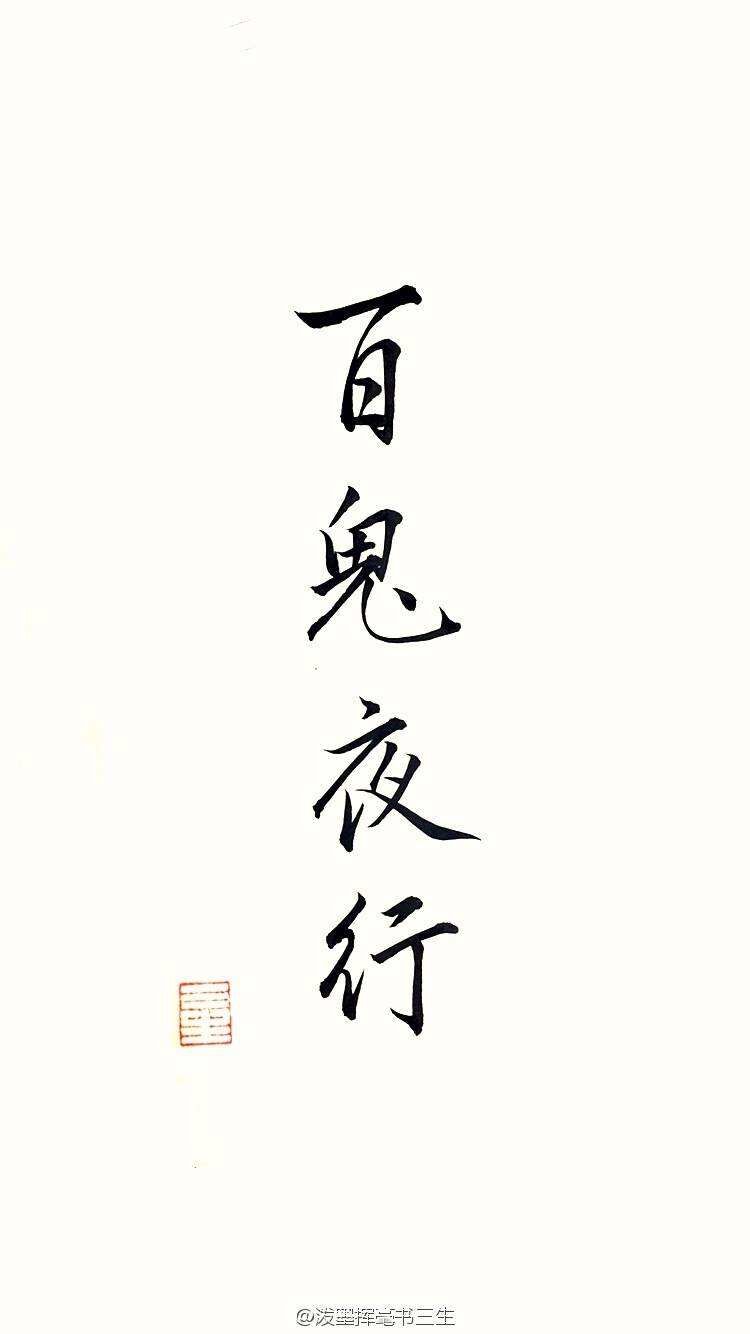 百鬼夜行
三生
@泼墨挥毫书三生